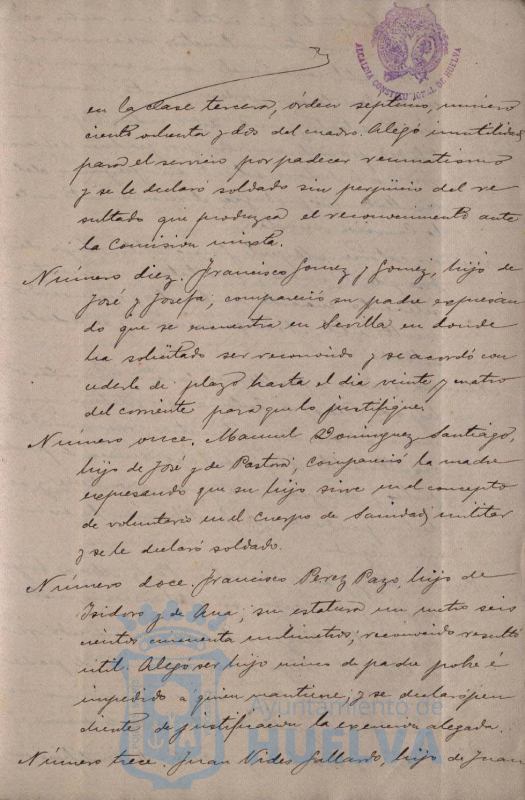 ALCALDIA CONSTITUCIONAL DE HUELVA
en la clase tercera, órden septimo, número
ciento ochenta y dos del cuadro. Alegó inutilidad
para el servicio por padecer reumatismo
y se le declaró soldado sin perjuicio del re
sultado que produzca el reconocimiento ante
la Comision mixta.
Número diez. Francisco Gomez y Gomez, hijo de
José y Josefa; compareció su padre expresan
do que se encuentra en Sevilla en donde
ha solicitado ser reconocido y se acordó con
cederle de plazo hasta el dia veinte y cuatro
del corriente para que lo justifique.
Número once. Manuel Dominguez Santiago,
hijo de José y de Pastora, compareció la madre
expresando que su hijo sirve en el concepto
de voluntario en el Cuerpo de Sanidad militar
y se le declaró soldado.
Número doce. Francisco Perez Pazo, hijo de
Isidoro y de Ana; su estatura un metro seis
cientos cincuenta milimetros; reconocido resultó
útil. Alegó ser hijo único de padre pobre é
impedido a quien mantiene; y se declaró pen
diente de justificacion la exencion alegada.
Número trece. Juan Vides Gallardo, hijo de Juan
Ayuntamiento de
HUELVA